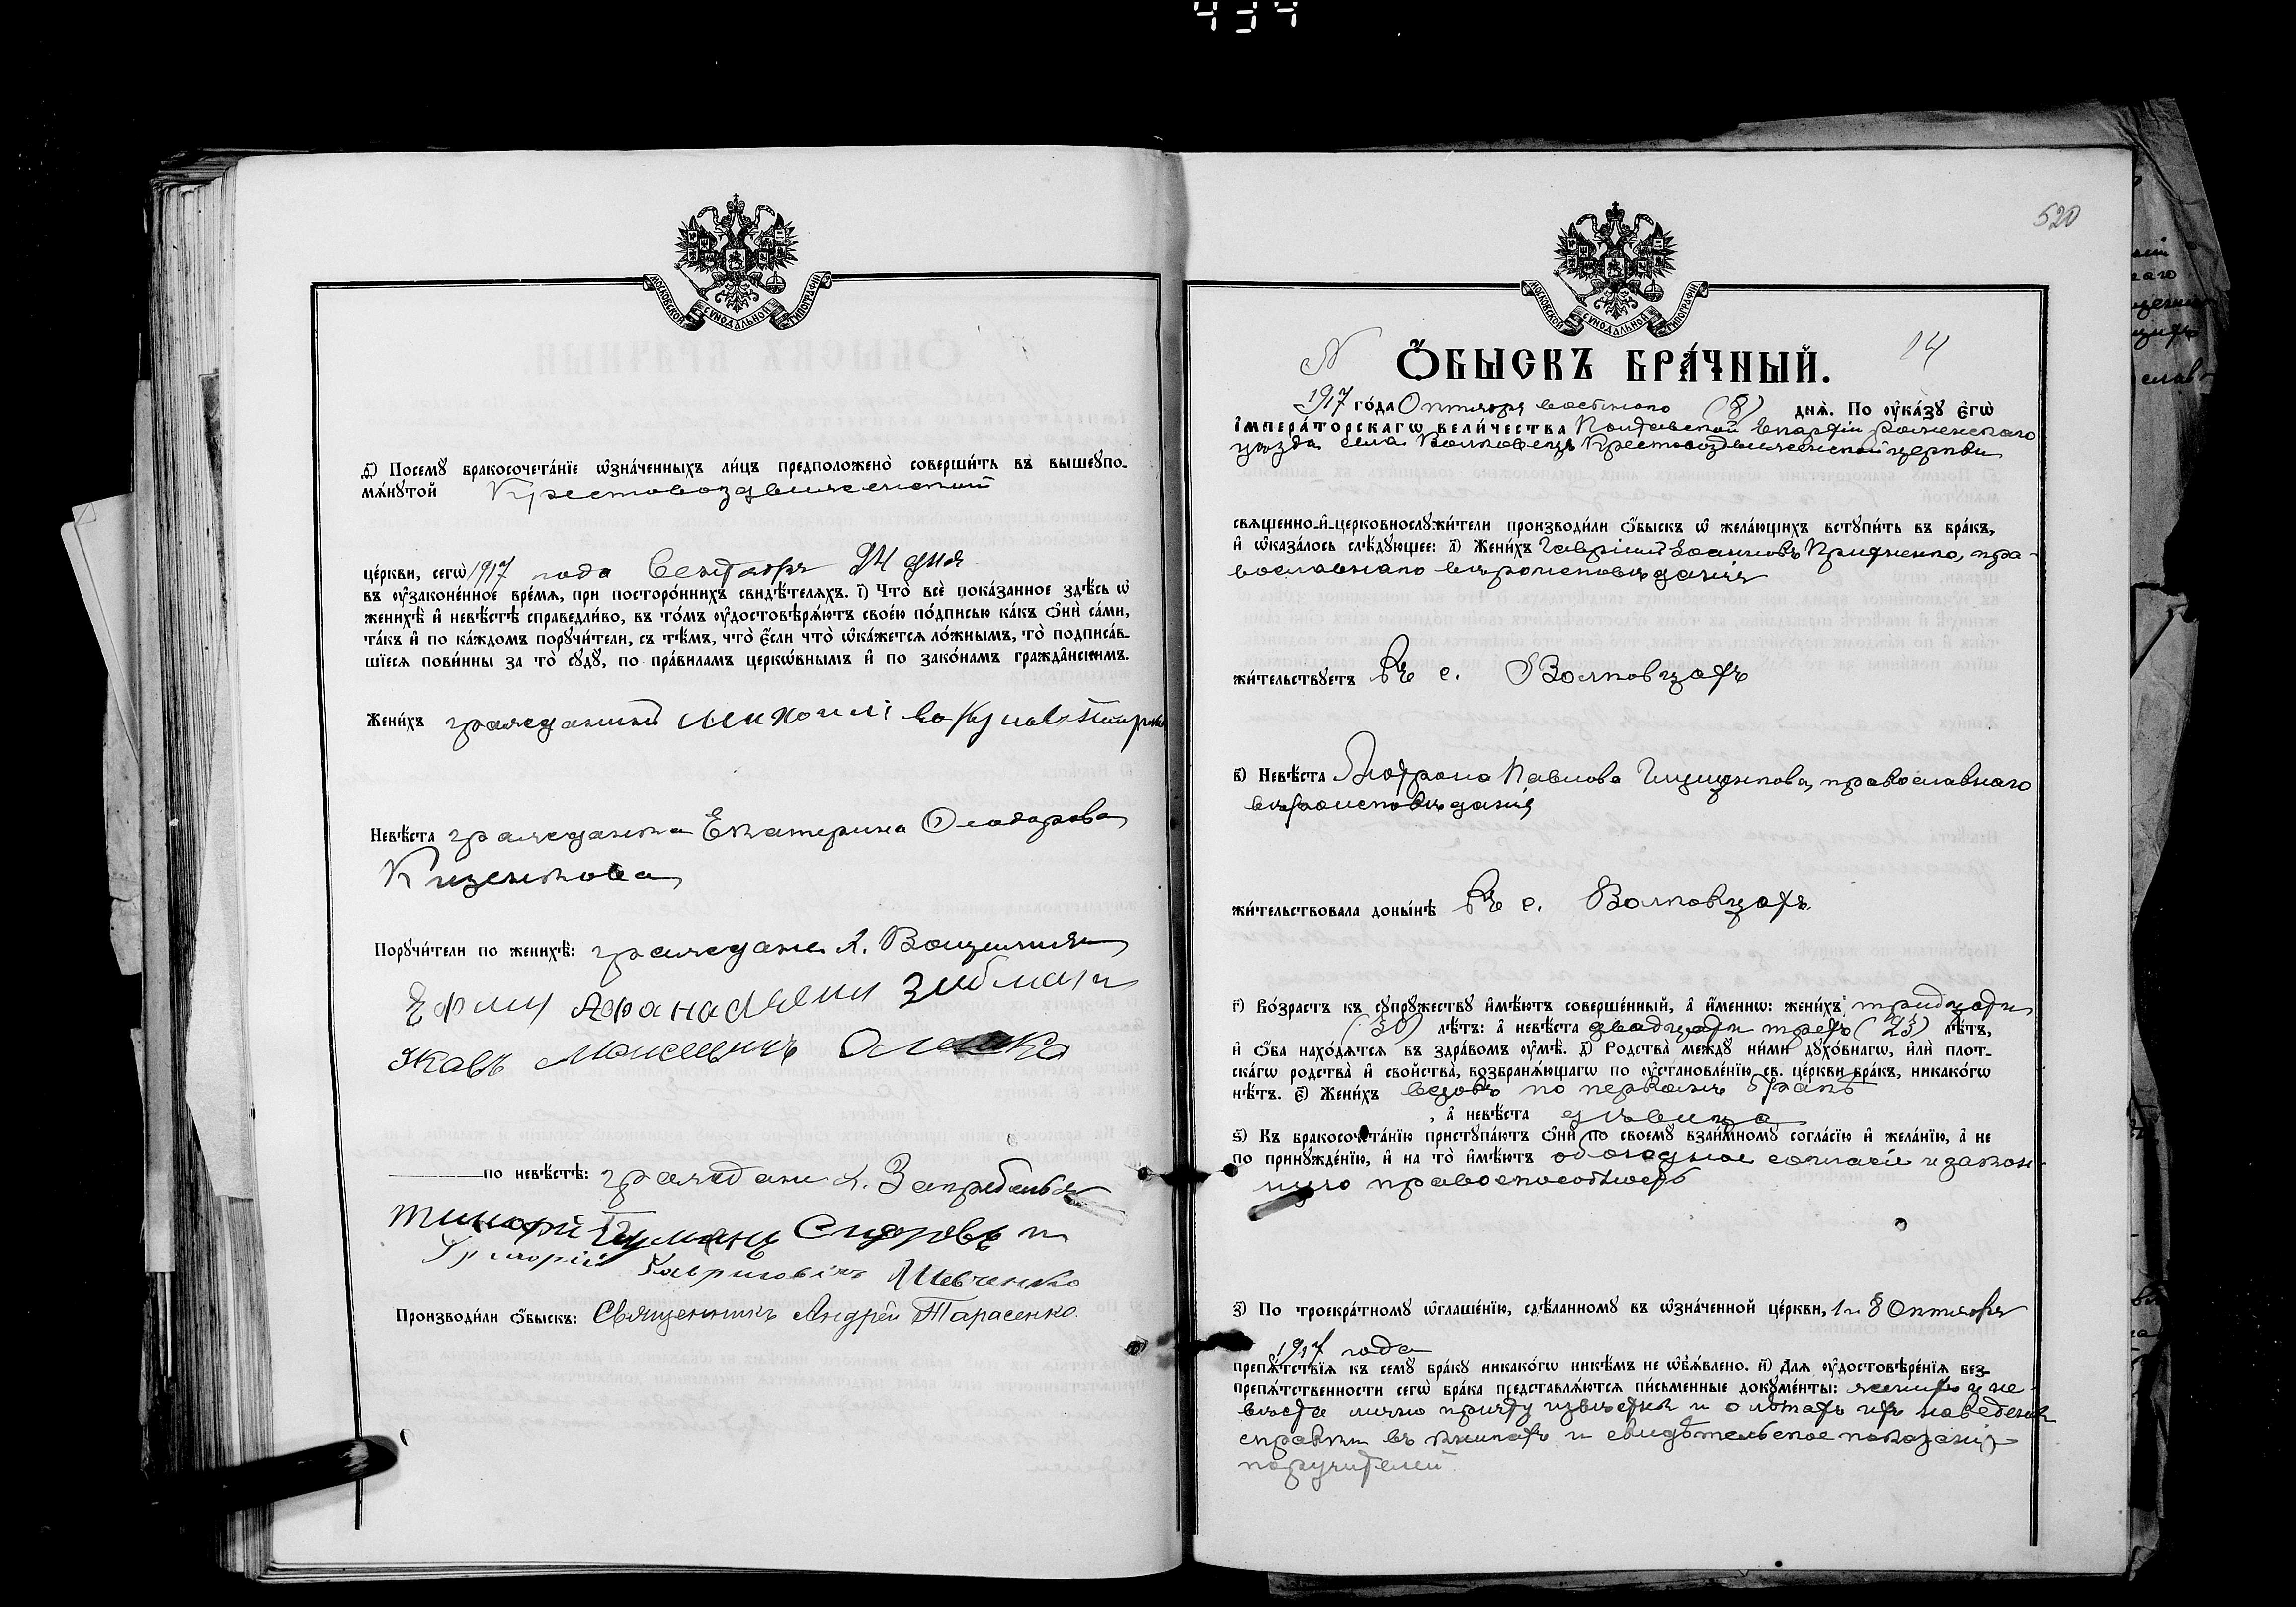 434
МОСКОВСКОЙ СУНОДАЛЬНОЙ ТИПОГРАФІИ
д҃) Посемꙋ бракосочета́нїе ѡ҆зна́ченныхъ ли́цъ предположено̀ соверши́ть въ вышеꙋпо-
мѧ́нꙋтой Крестовоздвиженской
це́ркви, сегѡ̀ 1917 года Сентября 24 дня
въ ᲂу҆зако́ненное вре́мѧ, при посторо́ннихъ свидѣ́телѧхъ. і҃) Что̀ всѐ пока́занное здѣ́сь ѡ҆
женихѣ̀ и҆ невѣ́стѣ справедли́во, въ то́мъ ᲂу҆достовѣрѧ́ютъ свое́ю по́дписью ка́къ ѻ҆нѝ са́ми,
та́къ и҆ по ка́ждомъ порꙋчи́тели, съ тѣ́мъ, что̀ є҆́сли что̀ ѡ҆ка́жетсѧ ло́жнымъ, то̀ подписа́в-
шїесѧ пови́нны за то̀ сꙋдꙋ̀, по пра́виламъ церкѡ́внымъ и҆ по зако́намъ гражда̂нскимъ.
Жени́хъ гражданинъ
Невѣ́ста гражданка Екатерина Ѳеодорова
Кизенкова
Порꙋчи́тели по женихѣ̀: граждане х.
Ефим Афанасиевич
Яковъ Моисеевичъ
по невѣ́стѣ: граждане х.
Сидоровъ и
Григорій Гавриловичъ Шевченко
Производи́ли ѻ҆́быскъ: Священникъ Андрей Тарасенко.
520
МОСКОВСКОЙ СУНОДАЛЬНОЙ ТИПОГРАФІИ
N Ѻ҆́БЫСКЪ БРА́ЧНЫЙ. 14
1917 го́да Октября восьмого (8) днѧ̀. По ᲂу҆ка́зꙋ є҆гѡ̀
і҆мпера́торскагѡ вели́чества Полтавской Епархіи Роменскаго
уѣзда села Волковецъ Крестовоздвиженской церкви
свѧщенно-и҆-церковнослꙋжи́тели производи́ли ѻ҆́быскъ ѡ҆ жела́ющихъ встꙋпи́ть въ бра́къ,
и҆ ѡ҆каза́лось слѣ́дꙋющее: а҃) Жени́хъ Гавріилъ Іоанновъ пра-
вославнаго вѣроисповѣданія
жи́тельствꙋетъ Въ с. Волковцахъ
в҃) Невѣ́ста Павлова православнаго
вѣроисповѣданія
жи́тельствовала доны́нѣ Въ с. Волковцахъ
г҃) Во́зрастъ къ сꙋпрꙋ́жествꙋ и҆мѣ́ютъ соверше́нный, а҆ и҆́меннѡ: жени́хъ тридцати
(30) лѣ́тъ: а҆ невѣ́ста двадцати трехъ (23) лѣ́тъ,
и҆ ѻ҆́ба нахо́дѧтсѧ въ здра́вомъ ᲂу҆мѣ̀. д҃) Родства̀ междꙋ ни́ми дꙋхо́внагѡ, и҆лѝ плот-
ска́гѡ родства̀ и҆ свойства̀, возбранѧ́ющагѡ по ᲂу҆становле́нїю св. це́ркви бра́къ, никако́гѡ
нѣ́тъ. є҃) Жени́хъ вдовъ по первомъ бракѣ
, а҆ невѣ́ста дѣвица
ѕ҃) Къ бракосочета́нїю пристꙋпа́ютъ ѻ҆нѝ по своемꙋ̀ взаи́мномꙋ согла́сїю и҆ жела́нїю, а҆ не
по принꙋжде́нїю, и҆ на то̀ и҆мѣ́ютъ обоюдное согласіе и закон-
ную правоспособность
з҃) По троекра́тномꙋ ѡ҆глаше́нїю, сдѣ́ланномꙋ въ ѡ҆зна́ченной це́ркви, 1 и 8 Октября
1917 года
препѧ́тствїѧ къ семꙋ̀ бра́кꙋ никако́гѡ никѣ́мъ не ѡ҆б̾ѧ́влено. и҃) Длѧ ᲂу҆достовѣре́нїѧ без-
препѧ́тственности сегѡ̀ бра́ка представлѧ́ютсѧ пи́сьменные докꙋме́нты: женихъ и не-
вѣста лично причту извѣстны и о лѣтахъ ихъ наведены
справки въ книгахъ и свидѣтельское показаніе
поручителей